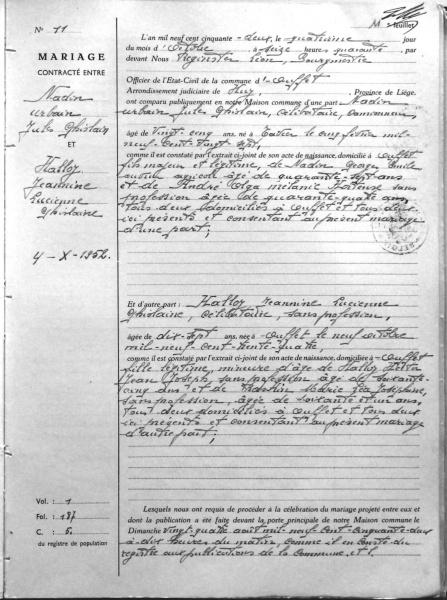 N° 11
MARIAGE
CONTRACTÉ ENTRE
Nadin
Urbain
Jules Ghislain
ET
Halloy
Jeannine
Lucienne
Ghislaine
4 - X - 1952.
Vol. : 1
Fol. : 187
C. : 5.
du registre de population
feuillet
L'an mil neuf cent cinquante - deux, le quatrième jour
du mois d'octobre à seize heures quarante, par
devant Nous Léon, Bourgmestre
Officier de l'Etat-Civil de la commune d'Ouffet
Arrondissement judiciaire de Huy, Province de Liège.
ont comparu publiquement en notre Maison commune d'une part Nadin
Urbain Jules Ghislain, célibataire, camionneur,
âgé de vingt-cinq ans, né à Tavier le cinq février mil-
neuf-cent-vingt-sept,
comme il est constaté par l'extrait ci-joint de son acte de naissance, domicilié à Ouffet
fils majeur et légitime, de Nadin Georges Emile
agricole âgé de quarante-sept ans
et de André Olga Mélanie Hortense sans
profession âgée de quarante-quatre ans
tous deux domiciliés à Ouffet et tous deux
ici présents et consentant au présent mariage
d'une part;
Et d'autre part : Halloy Jeannine Lucienne
Ghislaine, célibataire, sans profession,
âgée de dix-sept ans, née à Ouffet le neuf octobre
mil-neuf-cent-trente-quatre,
comme il est constaté par l'extrait ci-joint de son acte de naissance, domiciliée à Ouffet
fille légitime, mineure d'âge de Halloy
Jean Joseph sans profession âgé de soixante-
cinq ans et de Marie Léa Joséphine,
sans profession, âgée de soixante et un ans,
tous deux domiciliés à Ouffet et tous deux
ici présents et consentant au présent mariage
d'autre part;
Lesquels nous ont requis de procéder à la célébration du mariage projeté entre eux et
dont la publication a été faite devant la porte principale de notre Maison commune le
Dimanche vingt-quatre août mil-neuf-cent-cinquante-deux
à dix heures du matin, comme il en conste du
registre aux publications de la Commune, et